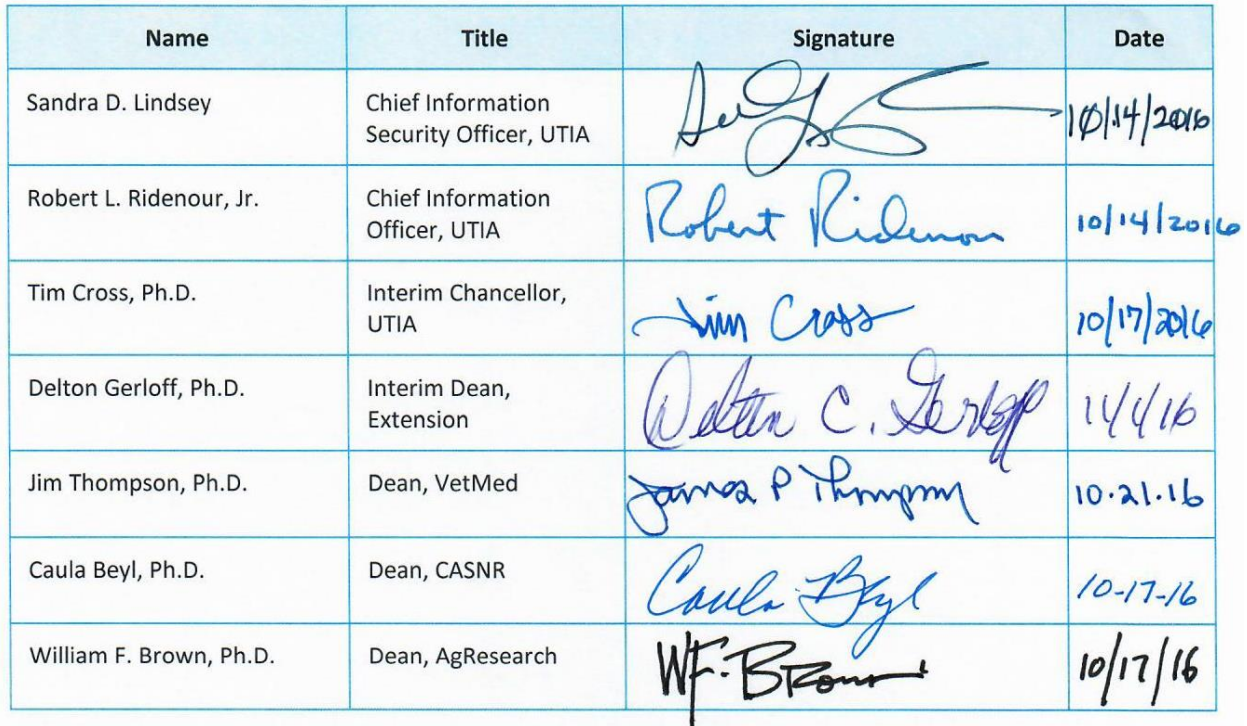 Name Title Signature Date
Sandra D. Lindsey Chief Information 10/14/2016
Security Officer, UTIA
Robert L. Ridenour, Jr. Chief Information Robert Ridenour 10/14/2016
Officer, UTIA
Tim Cross, Ph.D. Interim Chancellor, Tim Cross 10/17/2016
UTIA
Delton Gerloff, Ph.D. Interim Dean, Delton C. Gerloff 11/4/16
Extension
Jim Thompson, Ph.D. Dean, VetMed James P Thompson 10.21.16
Caula Beyl, Ph.D. Dean, CASNR Caula Beyl 10-17-16
William F. Brown, Ph.D. Dean, AgResearch WF. Brown 10/17/16